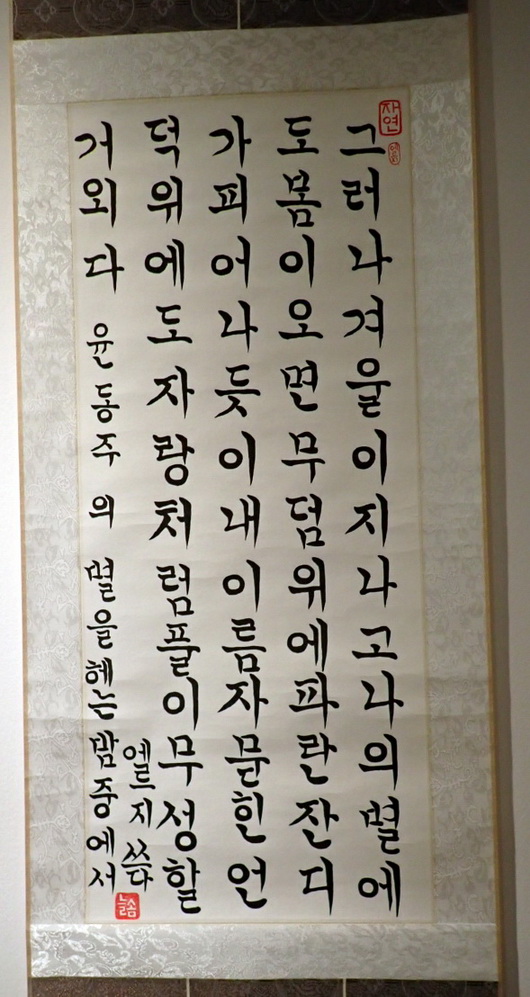 자연
그러나겨울이지나고나의별에
도봄이오면무덤위에파란잔디
가피어나듯이내이름자묻힌언
덕위에도자랑처럼풀이무성할
거외다 윤동주의 별을헤는밤중에서
쓰다
늘솜